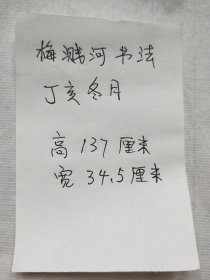 梅溅河书法
丁亥冬月
高 137 厘米
宽 34.5 厘米